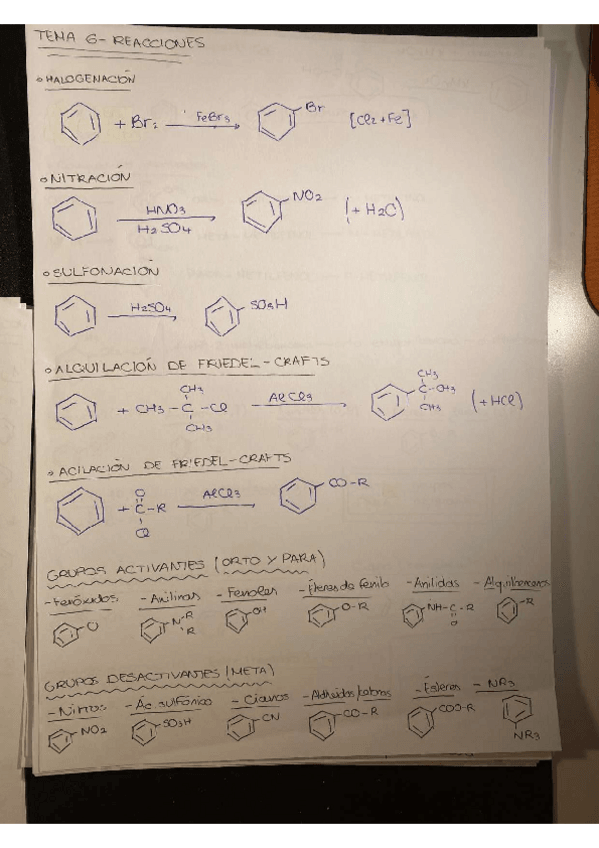 TEMA 6- REACCIONES
• HALOGENACIÓN
+ Br₂ FeBr₃ Br [Cl₂ + Fe]
• NITRACIÓN
HNO₃ NO₂ (+ H₂O)
H₂SO₄
• SULFONACIÓN
H₂SO₄ SO₃H
• ALQUILACIÓN DE FRIEDEL-CRAFTS
CH₃ CH₃
+ CH₃ - C - Cl AlCl₃ C - CH₃ (+ HCl)
CH₃ CH₃
• ACILACIÓN DE FRIEDEL-CRAFTS
O
+ C-R AlCl₃ CO-R
Cl
GRUPOS ACTIVANTES (ORTO Y PARA)
- Fenóxidos - Anilinas - Fenoles - Éteres de fenilo - Anilidas - Alquilbencenos
O N R R OH O-R NH-C-R O R
GRUPOS DESACTIVANTES (META)
- Nitros - Ác. sulfónico - Cianos - Aldheidos/cetonas - Ésteres - NR₃
NO₂ SO₃H CN CO-R COO-R NR₃